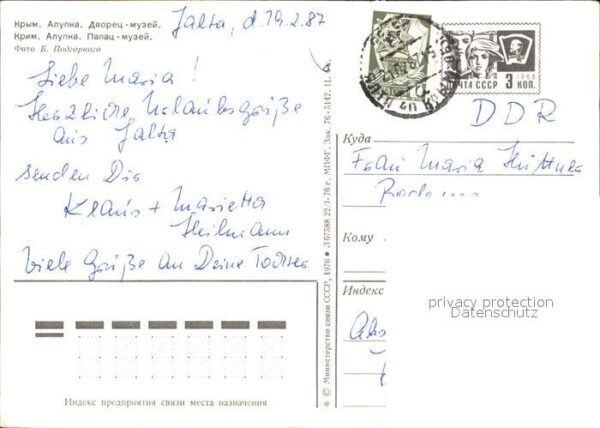 Крым. Алупка. Дворец-музей.
Крим. Алупка. Палац-музей.
Фото Б. Подгорного
Jalta, d. 19.2.87
Liebe Maria!
Herzliche Urlaubsgrüße
aus Jalta
senden Dir
Klaus + Marietta
Heilmann
Viele Grüße an Deine Tochter
ПОЧТА СССР
1966
3 КОП.
DDR
Куда
Frau Maria
Кому
Индекс
privacy protection
Datenschutz
* © Министерство связи СССР, 1976 * Л 67588 22/I-76 г. МПФГ. Зак. 76-5142.
Индекс предприятия связи места назначения